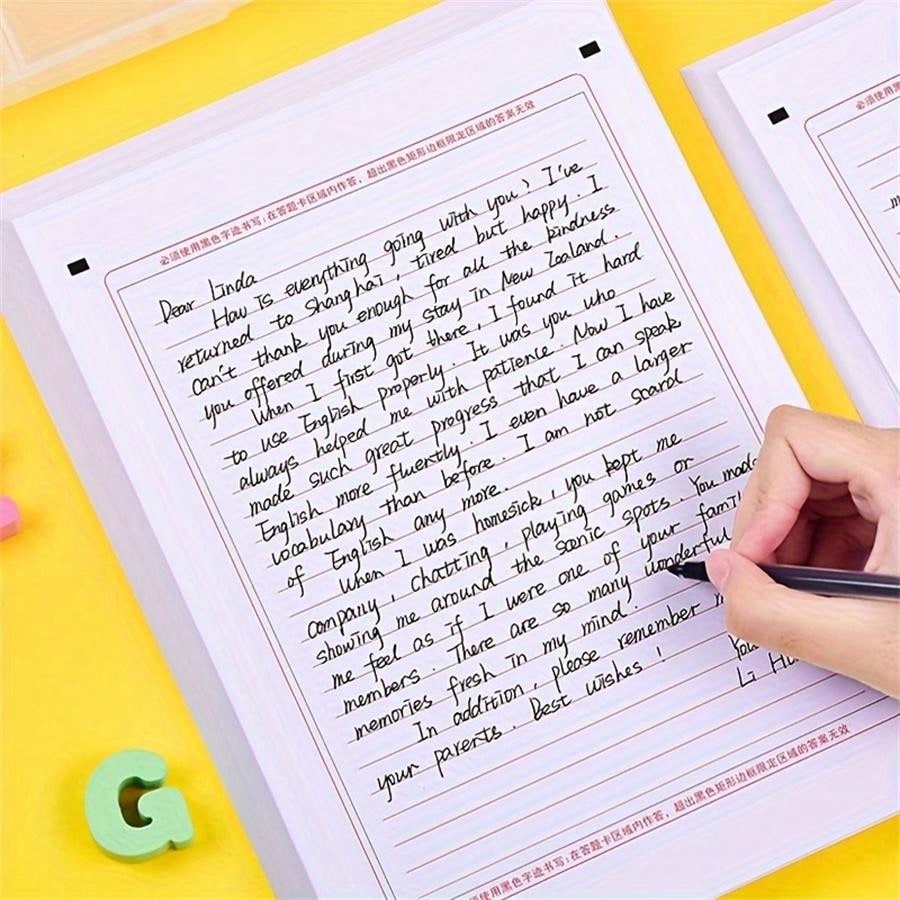 必须使用黑色字迹书写;在答题卡区域内作答，超出黑色矩形边框限定区域的答案无效
Dear Linda
How is everything going with you? I've
returned to Shanghai, tired but happy. I
can't thank you enough for all the kindness
you offered during my stay in New Zealand.
When I first got there, I found it hard
to use English properly. It was you who
always helped me with patience. Now I have
made such great progress that I can speak
English more fluently. I even have a larger
vocabulary than before. I am not scard
of English any more.
When I was homesick, you kept me
company, chatting, playing games or
showing me around the scenic spots. You made
me feel as if I were one of your
members. There are so many wonderful
memories fresh in my mind.
In addition, please remember
your parents. Best wishes!
Li
必须使用黑色字迹书写;在答题卡区域内作答，超出黑色矩形边框限定区域的答案无效
必须使用